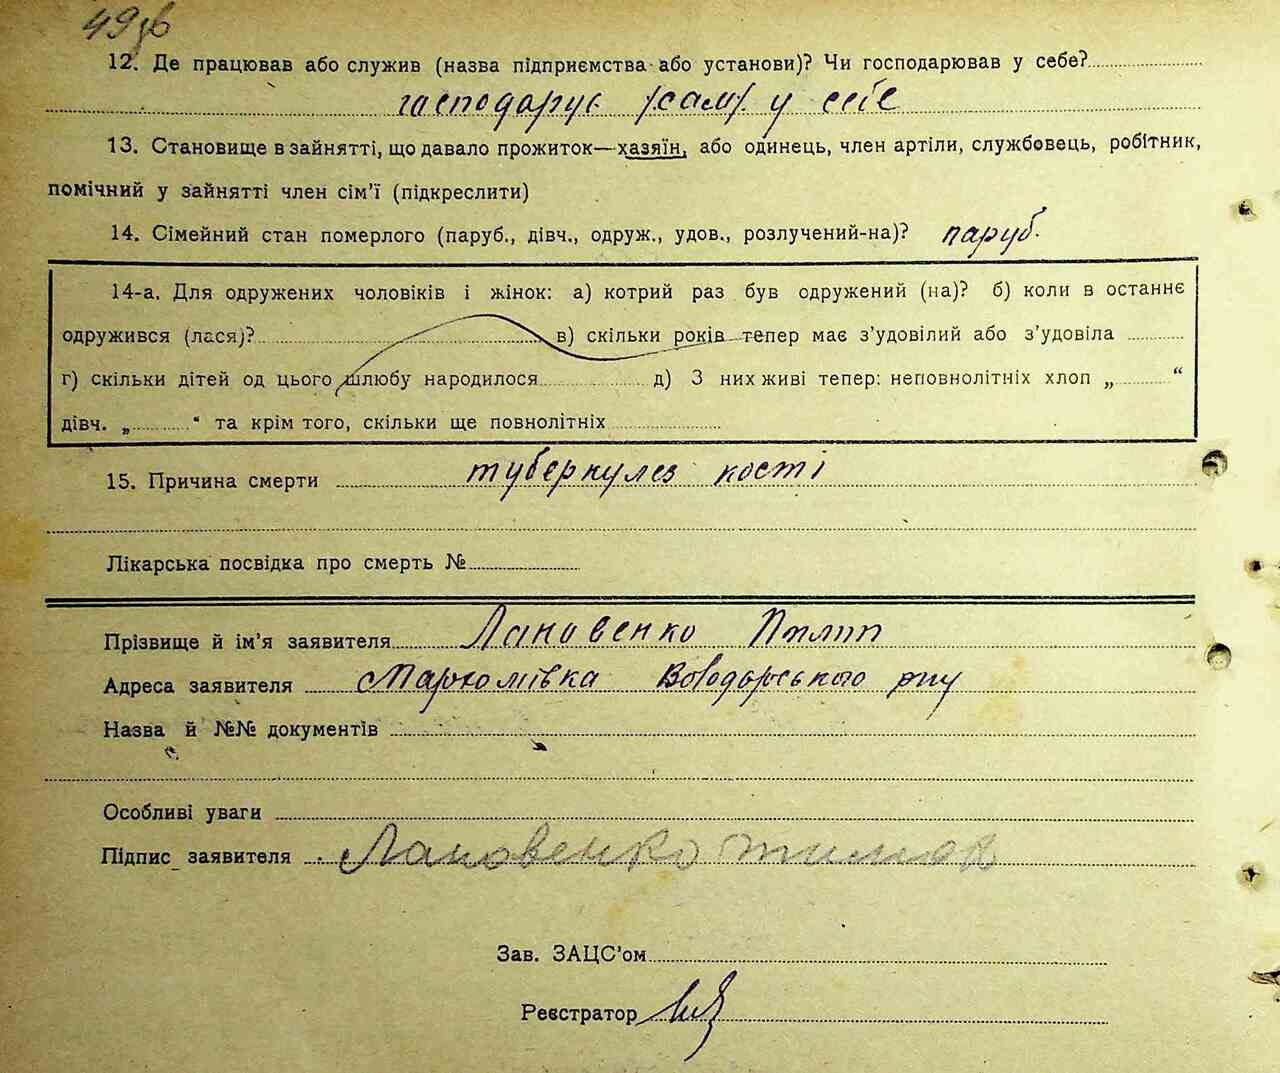 49зв
12. Де працював або служив (назва підприємства або установи)? Чи господарював у себе?
господарує /сам/ у себе
13. Становище в зайнятті, що давало прожиток—хазяїн, або одинець, член артіли, службовець, робітник,
помічний у зайнятті член сім'ї (підкреслити)
14. Сімейний стан померлого (паруб., дівч., одруж., удов., розлучений-на)? паруб.
14-а. Для одружених чоловіків і жінок: а) котрий раз був одружений (на)? б) коли в останнє
одружився (лася)? в) скільки років тепер має з'удовілий або з'удовіла
г) скільки дітей од цього шлюбу народилося д) З них живі тепер: неповнолітніх хлоп „ “
дівч. „ “ та крім того, скільки ще повнолітніх
15. Причина смерти туберкулез кості
Лікарська посвідка про смерть №
Прізвище й ім'я заявителя Лановенко Пилип
Адреса заявителя Мармоліївка Володарського р-ну
Назва й №№ документів
Особливі уваги
Підпис заявителя Лановенко
Зав. ЗАЦС'ом
Реєстратор